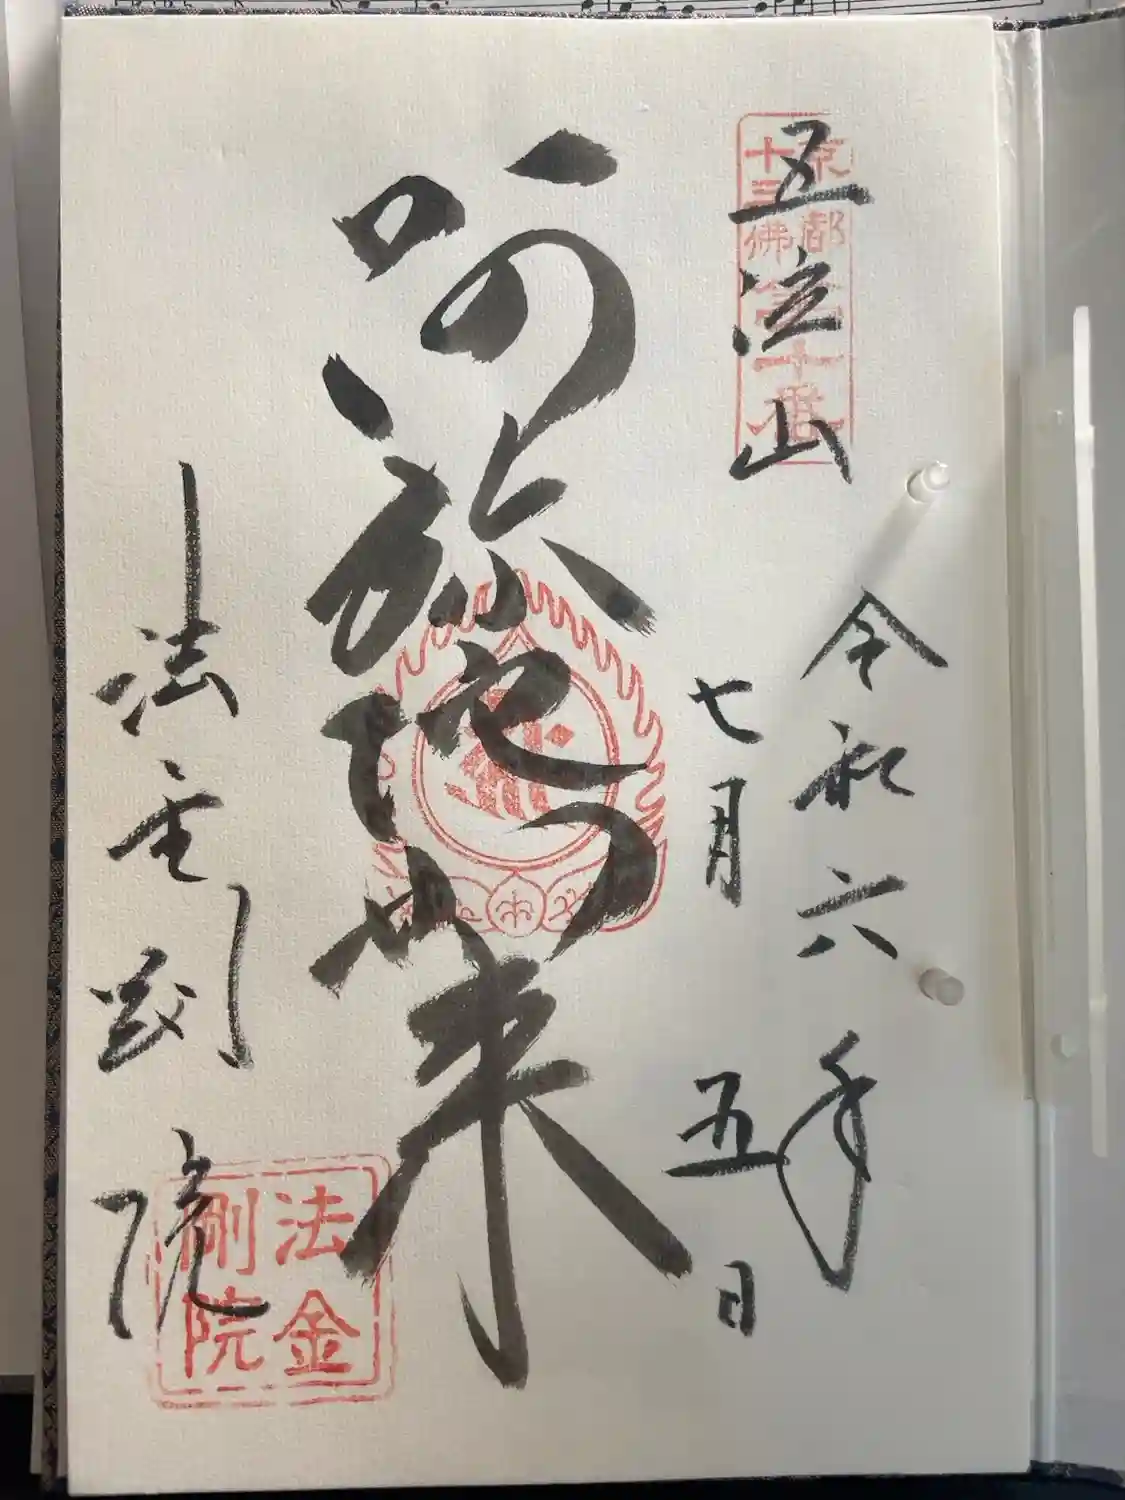 五位山
京都
十三佛第十番
令和六年
七月五日
阿弥陀如来
法金剛院
法金
剛院